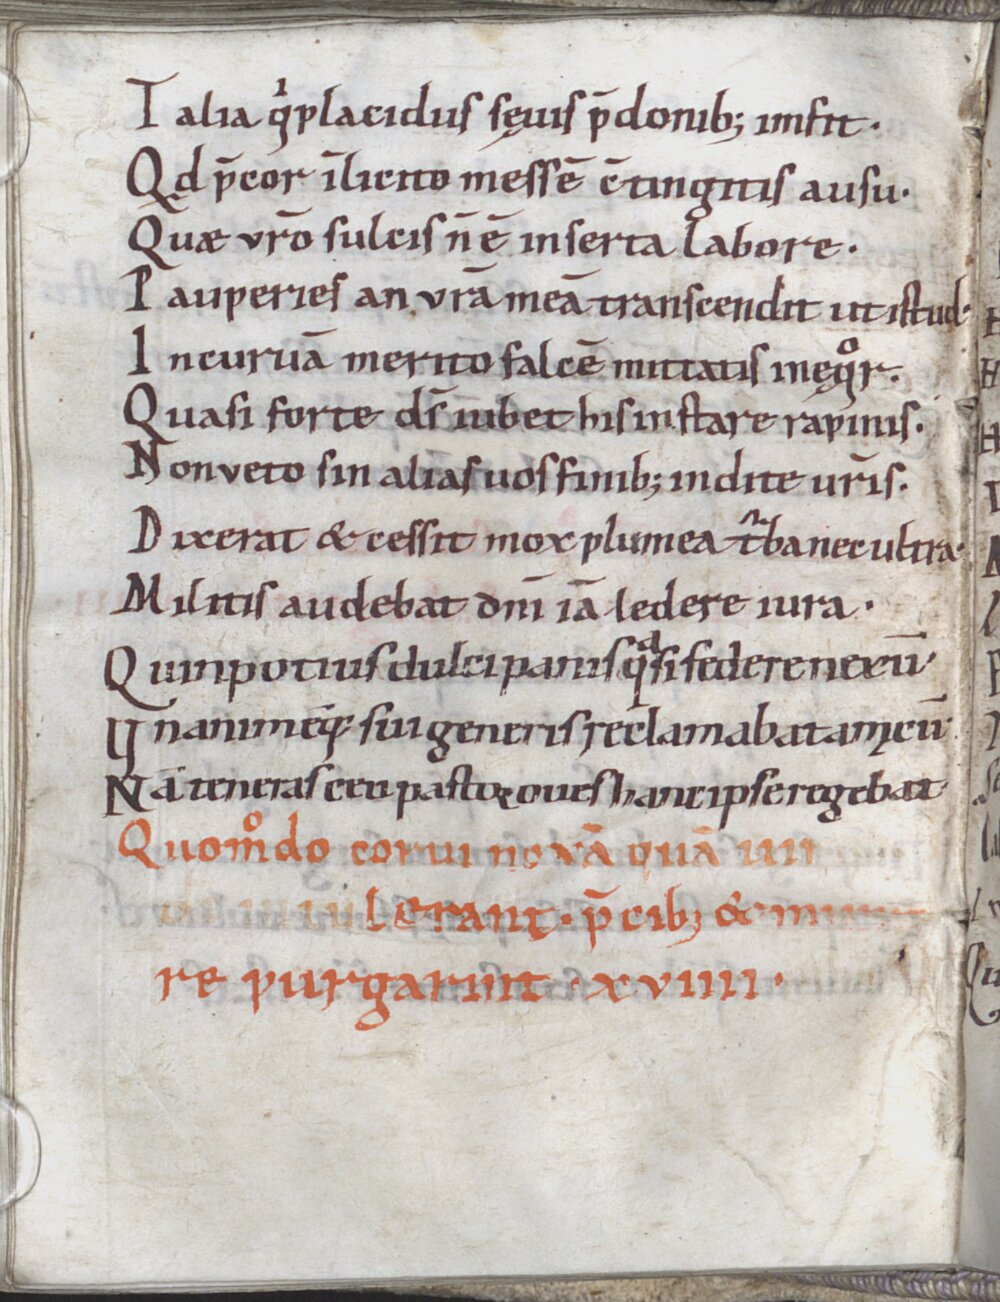 Talia q̍ placidus sęuis p̄donib; imfit·
Qd p̄cor īlicito messē c̄tingitis ausu·
Quæ vr̄o sulcis n̄ ē inserta labore·
Pauperies an vr̄a meā transcendit ut istud·
Incuruā merito falcē mittatis in eqͦr·
Quasi forte ds̄ iubet his instare rapinis·
Non veto sin alias uos finib; indite ur̄is·
Dixerat & cessit mox plumea t̄ba nec ultra·
Militis audebat dn̄i iā ledere iura·
Quin potius dulci panis qͣsi federe nexū·
Unanimēq; sui generis reclamabat amicū·
Nā teneras ceu pastor oues hanc ipse regebat
Quom̊do corui noxā quā
lerant· p̄cib; &
re purgarint· xviiii·